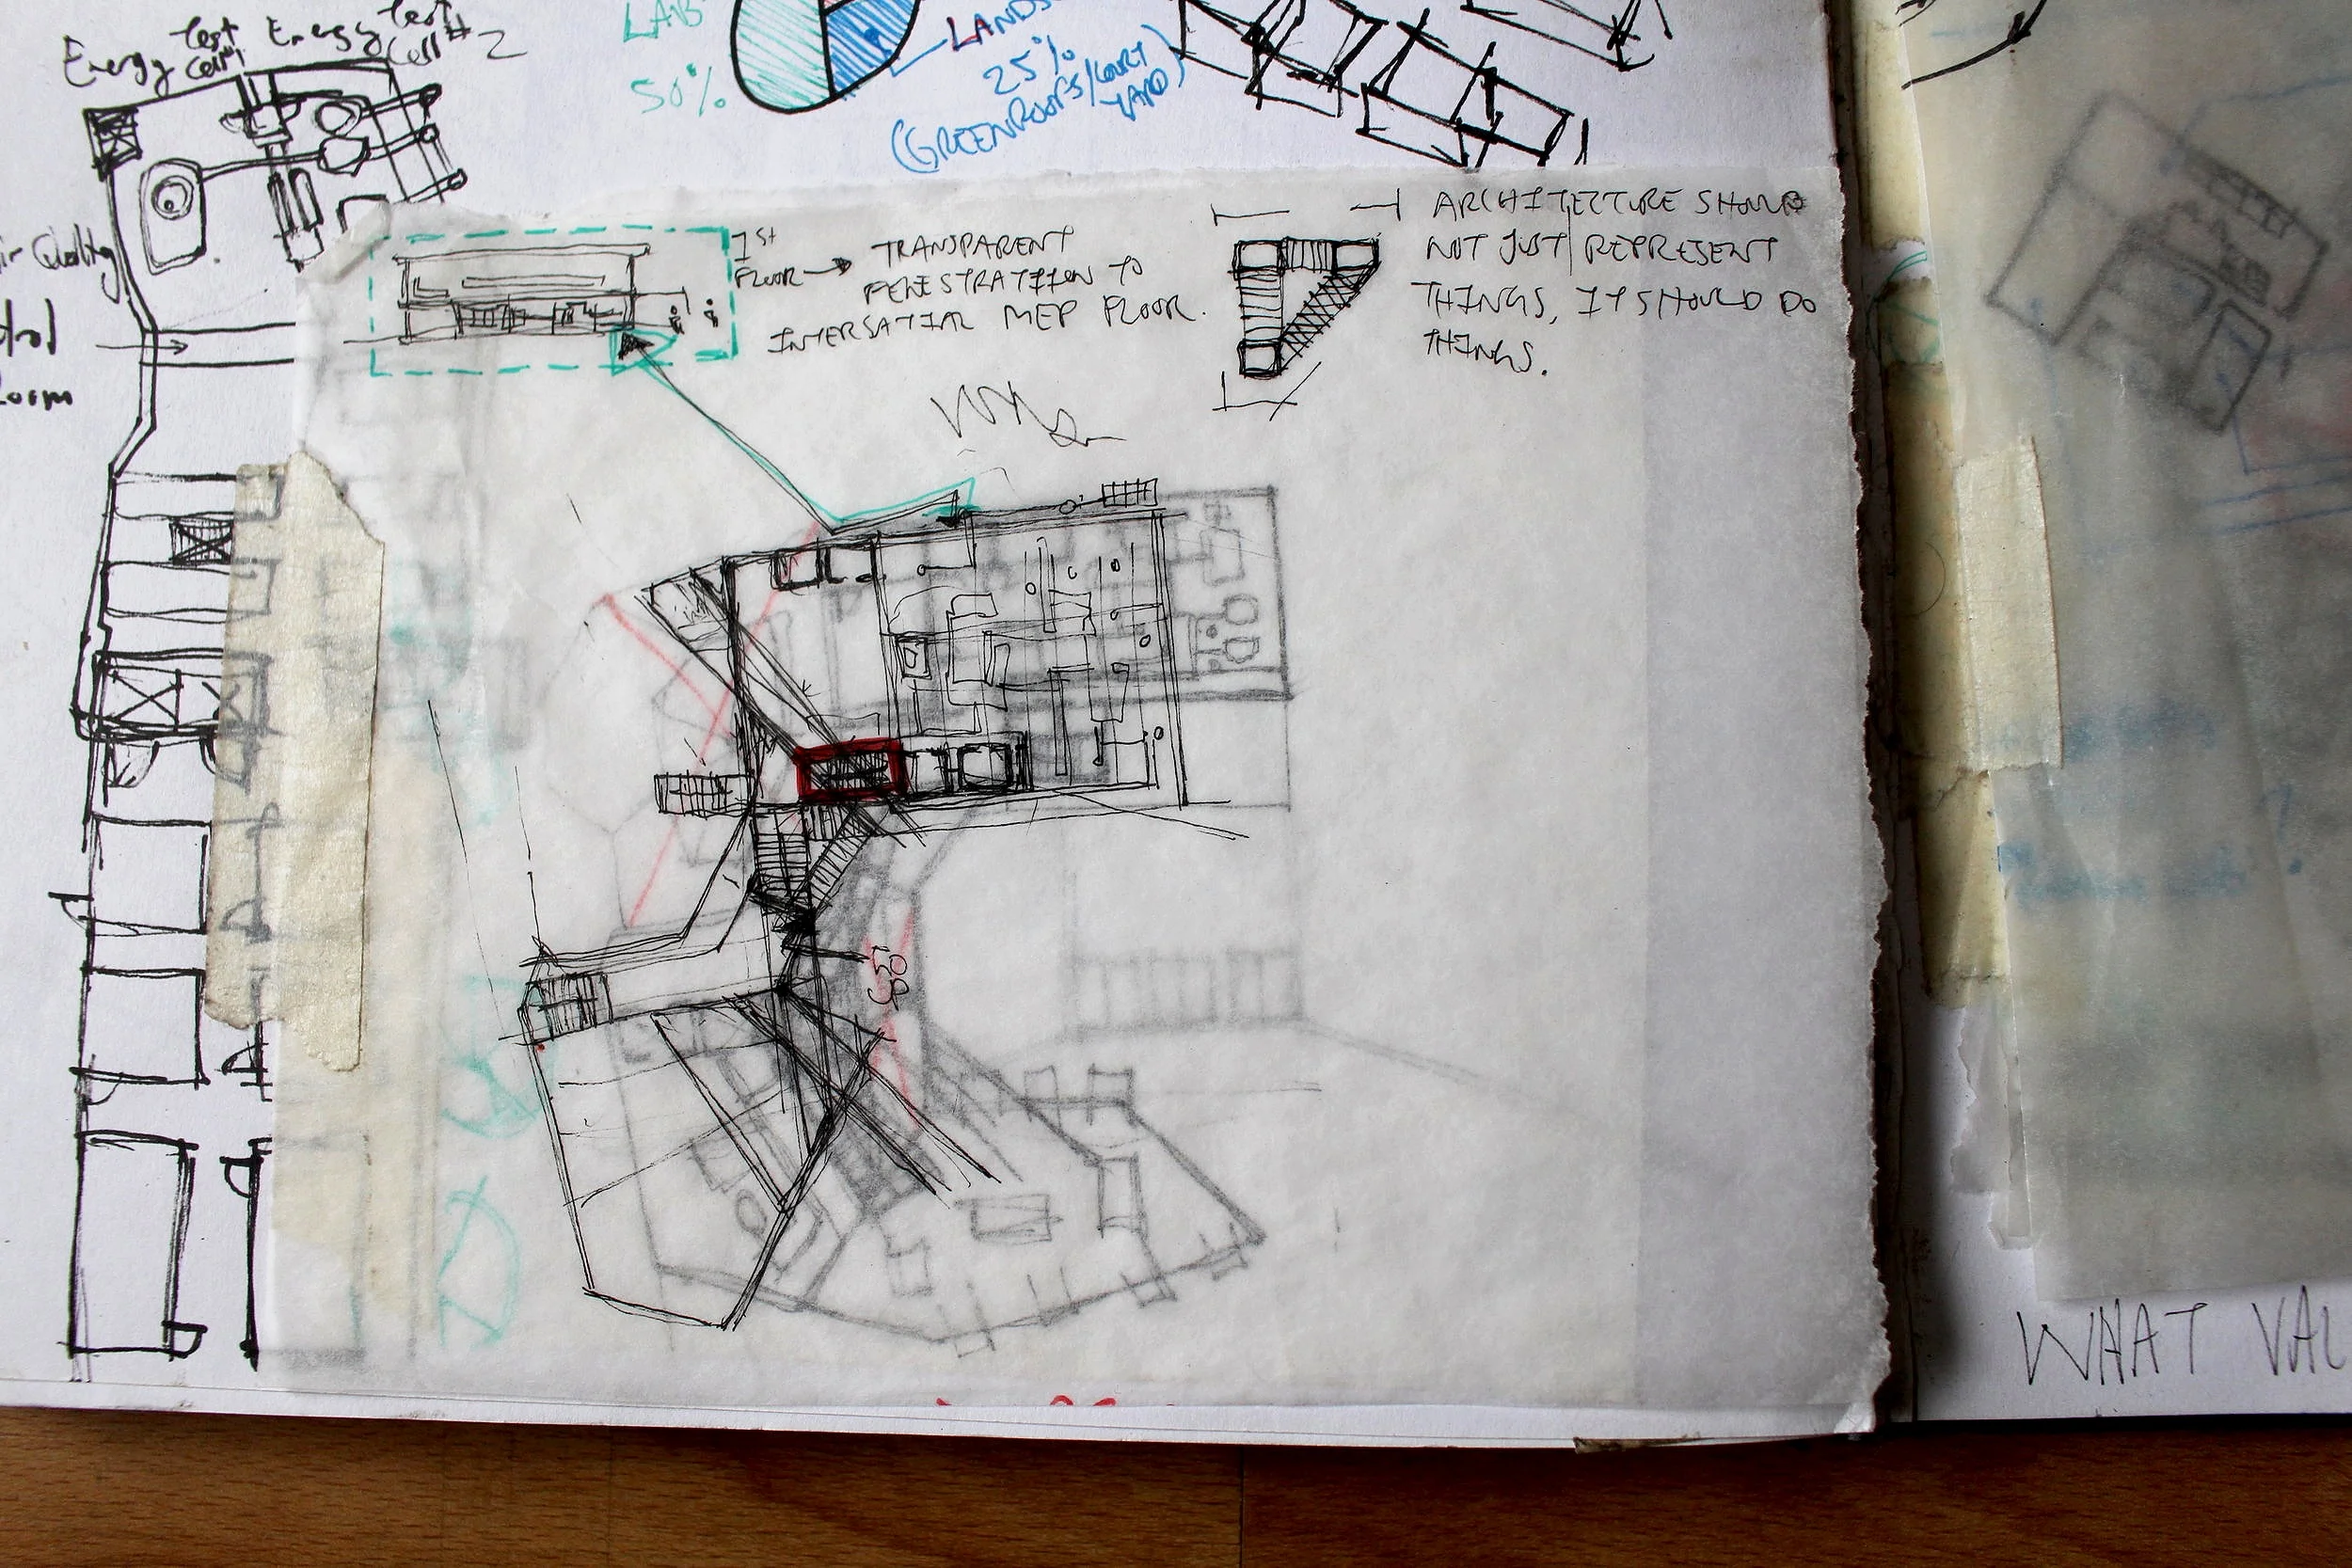 Energy Test Cell #1
Energy Test Cell #2
LAB
50%
25%
(GREENROOFS/COURT
YARD)
Air Quality
1ST
FLOOR
TRANSPARENT
FENESTRATION TO
INTERSATIAL MEP FLOOR.
ARCHITECTURE SHOULD
NOT JUST REPRESENT
THINGS, IT SHOULD DO
THINGS.
WHAT VAL